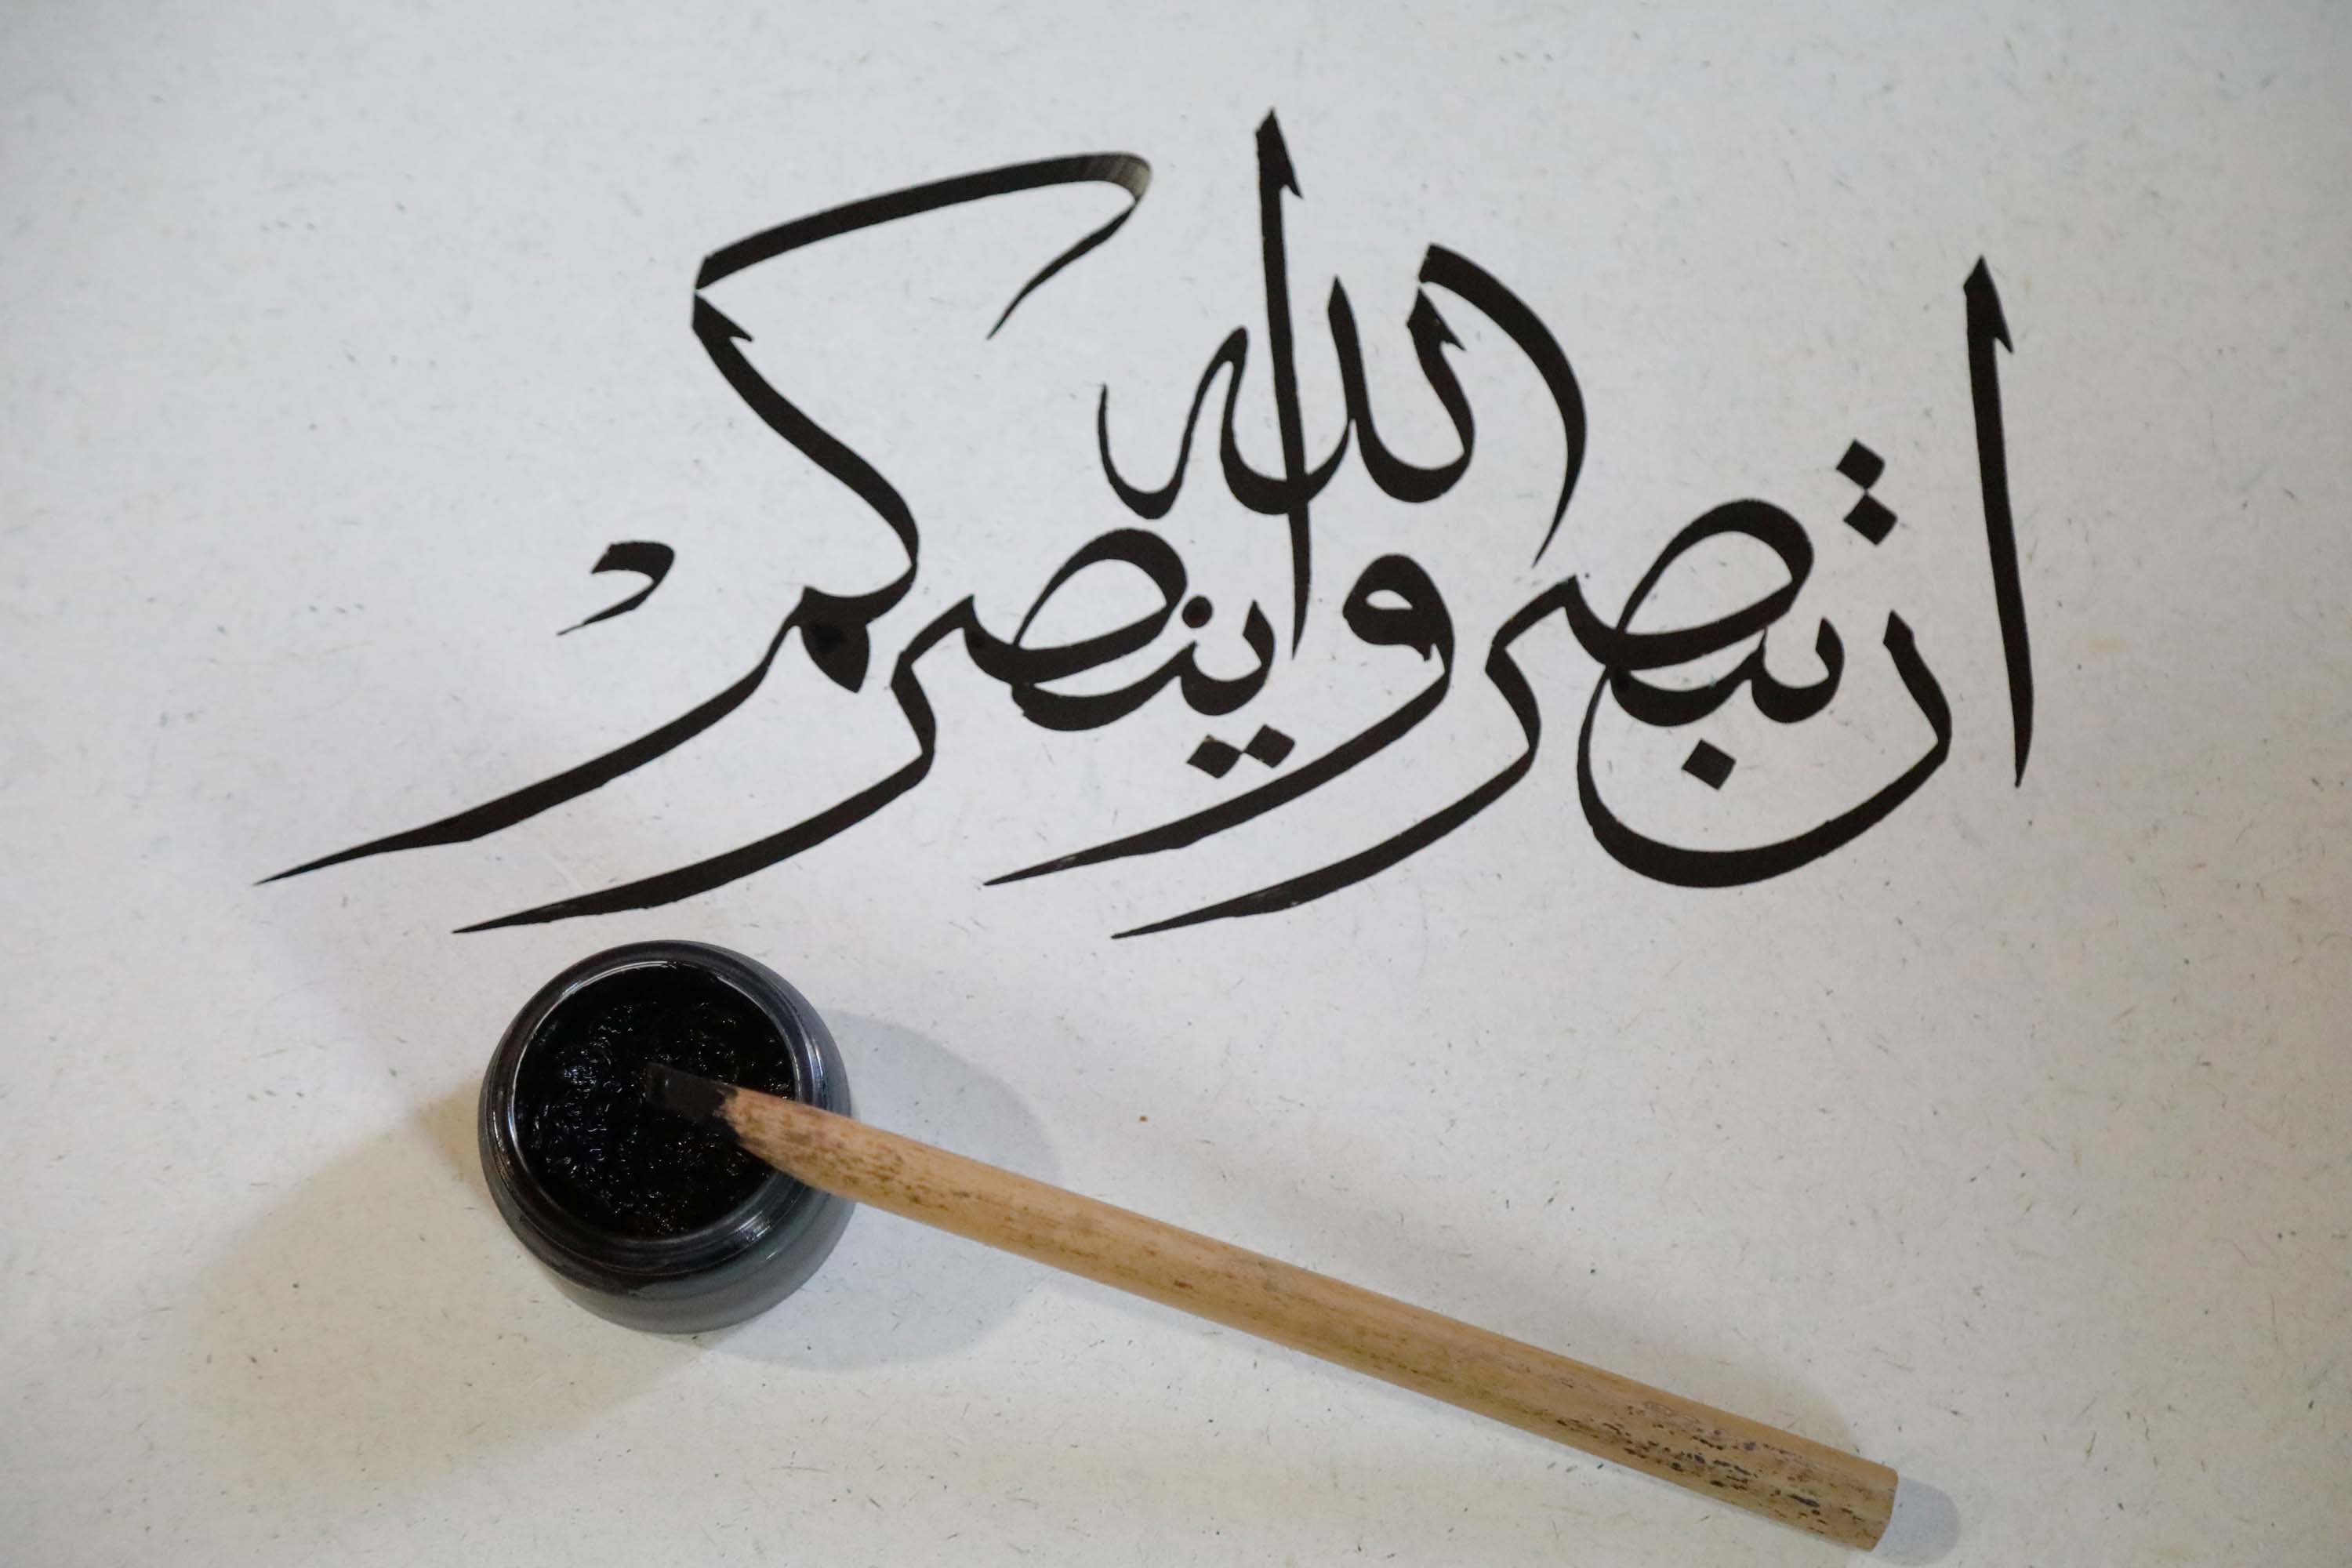 ان تنصروا الله ينصركم